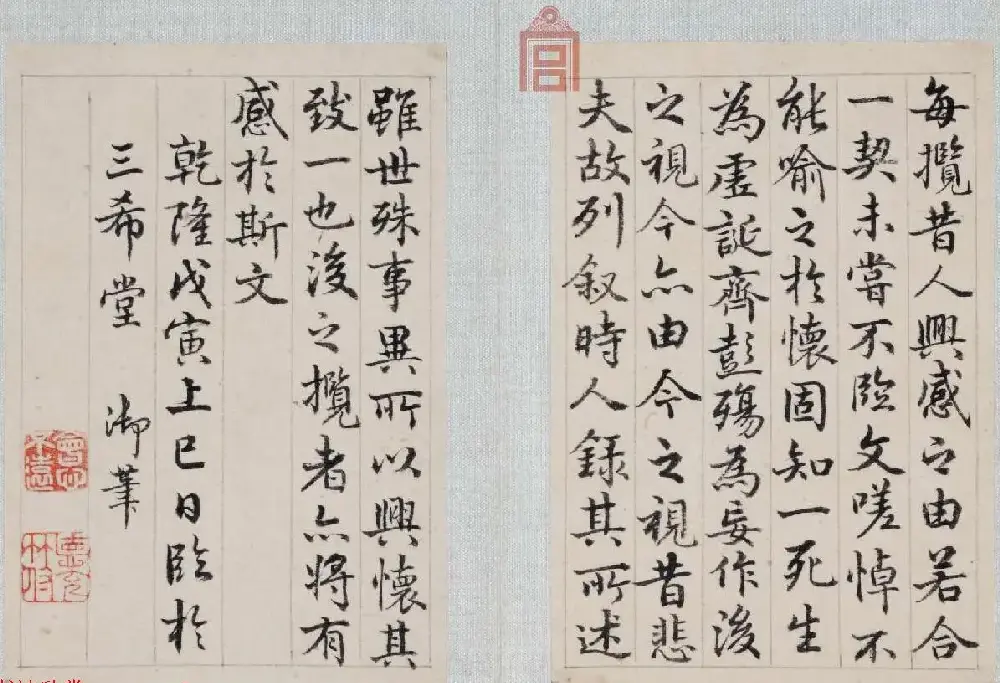 每攬昔人興感之由若合
一契未嘗不臨文嗟悼不
能喻之於懷固知一死生
為虛誕齊彭殤為妄作後
之視今亦由今之視昔悲
夫故列敘時人錄其所述
雖世殊事異所以興懷其
致一也後之攬者亦將有
感於斯文
乾隆戊寅上巳日臨於
三希堂 御筆